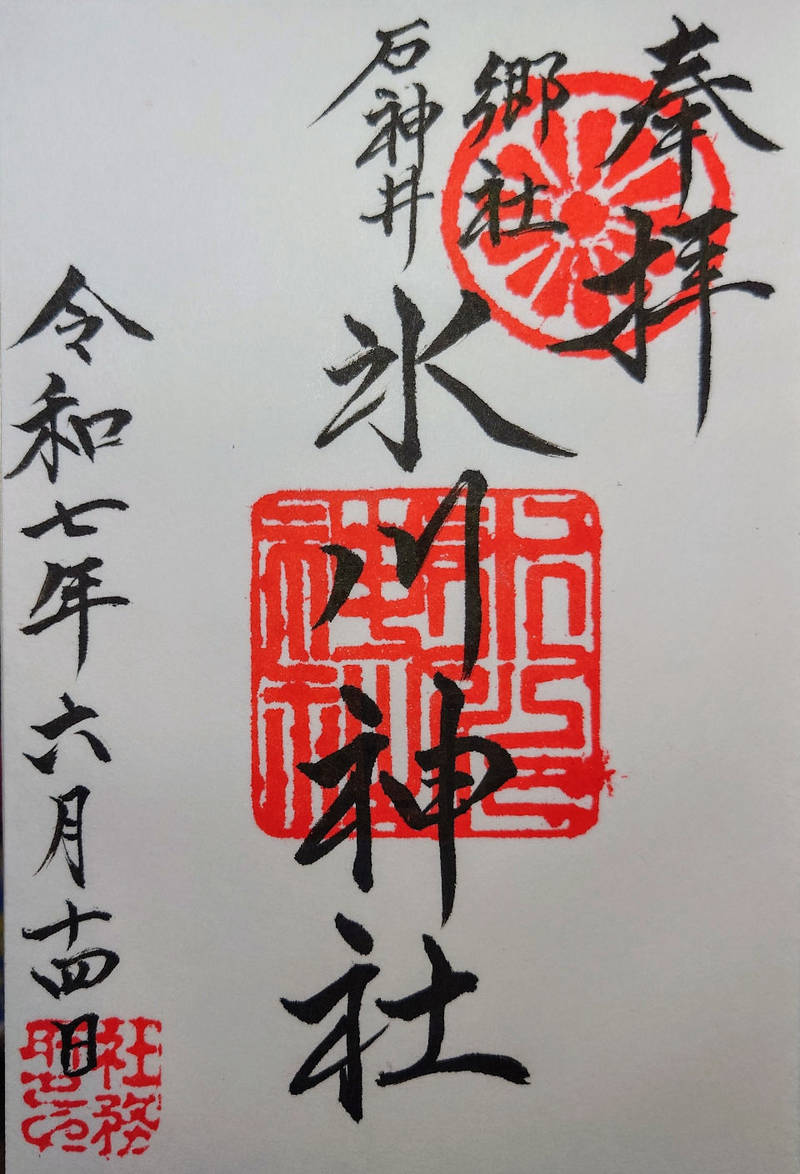 奉拝
郷社
石神井
氷川神社
令和七年六月十四日
社務所印